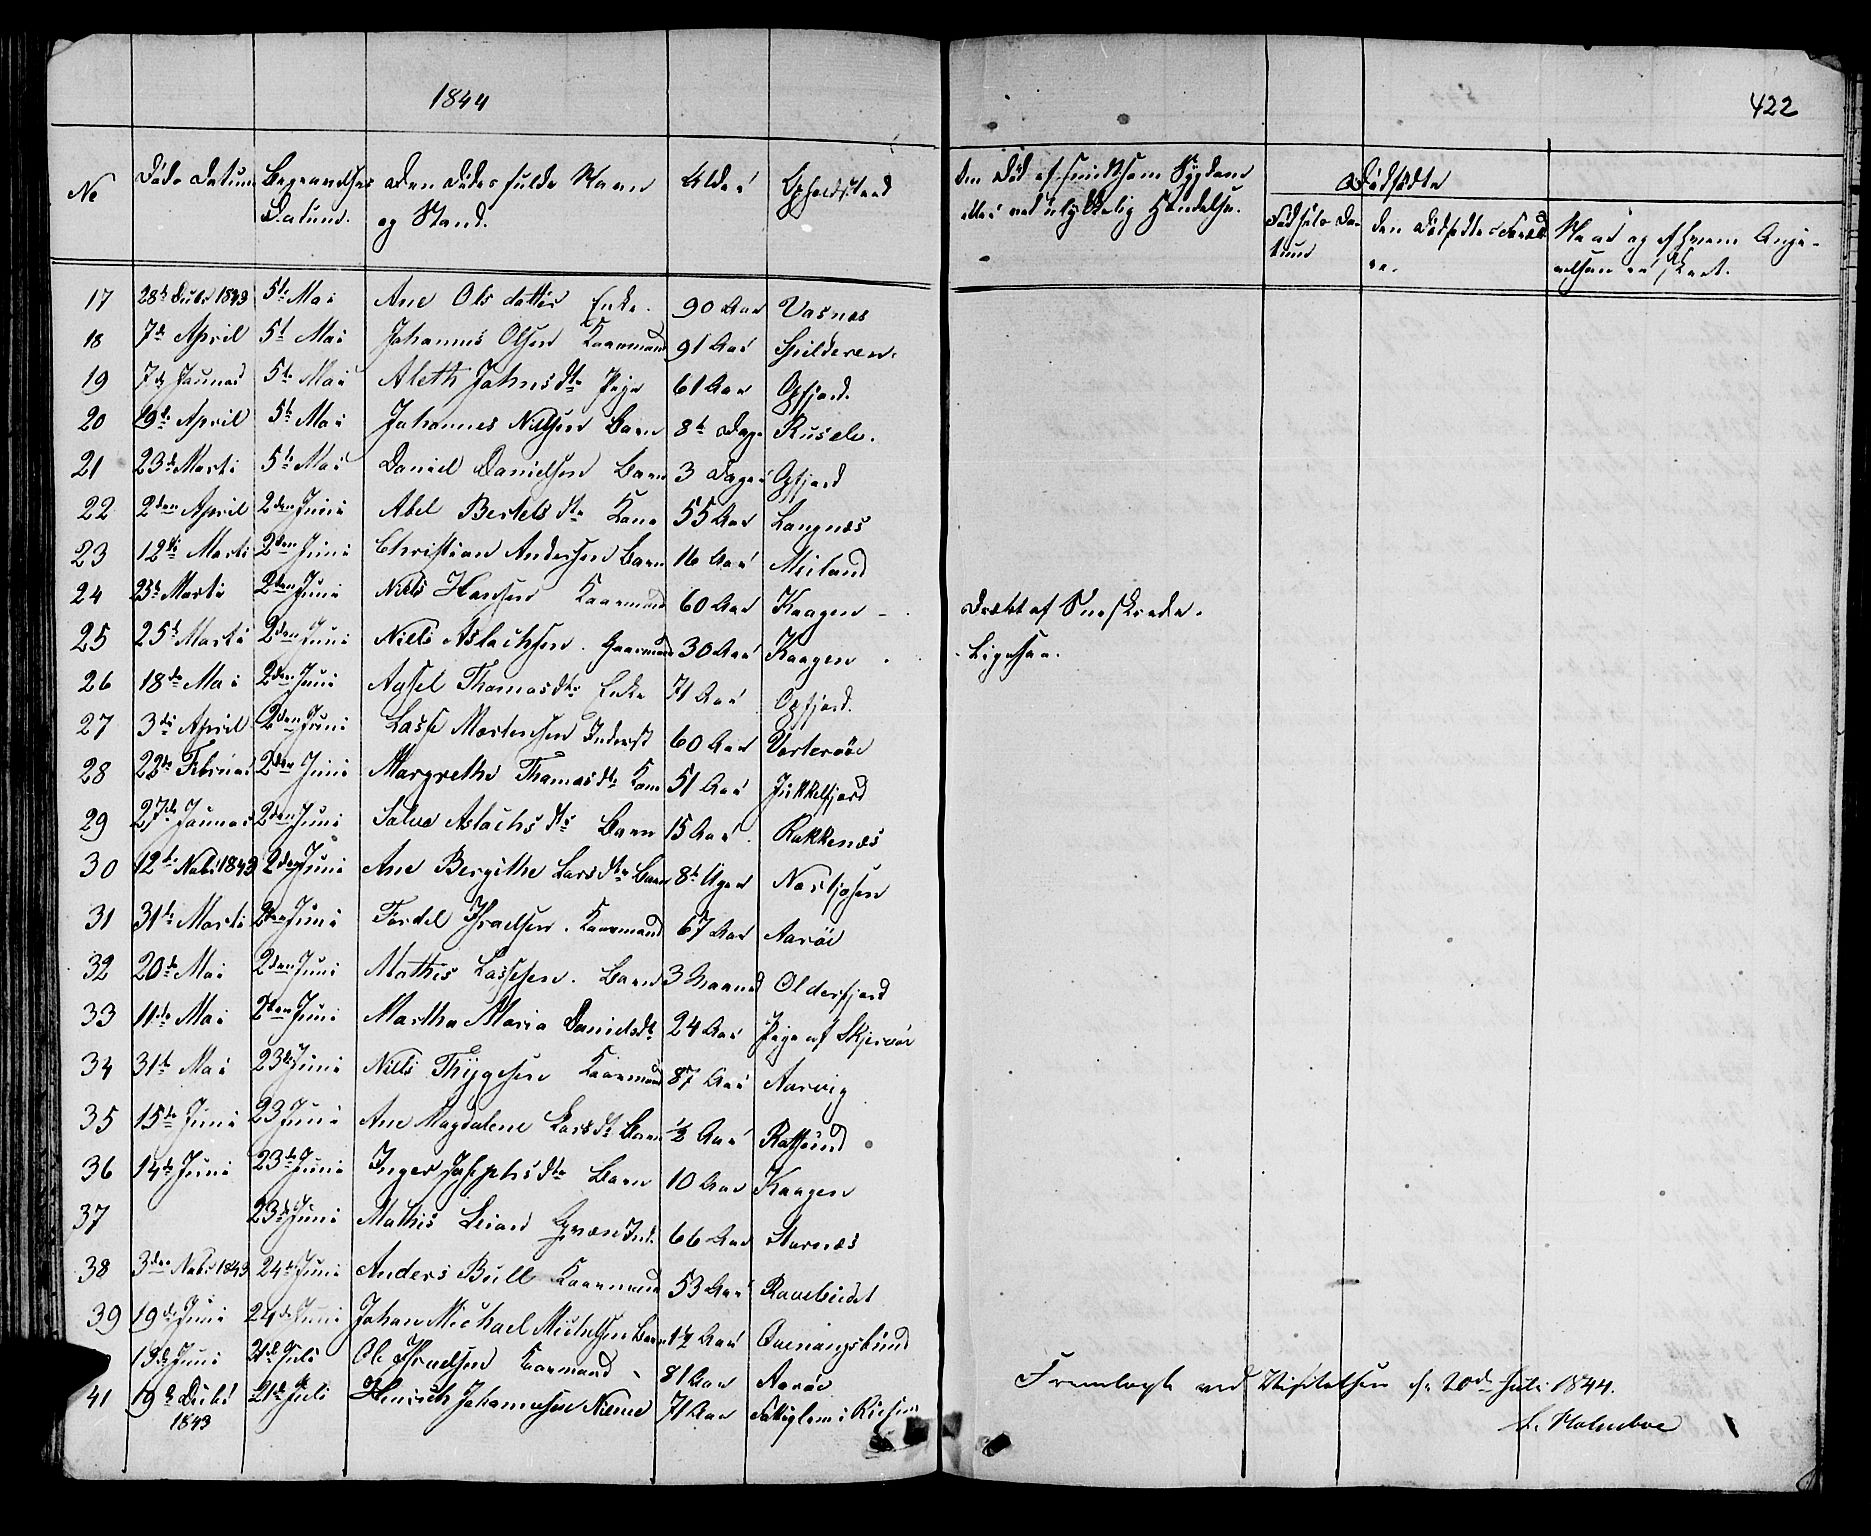 1844
422
No Døds Datum Begravelses Datum. Den Dødes fulde Navn og Stand. Alder Opholdsted Den Død af smitsom Sygdom eller ved ulykkelig Hændelse. Dødfødte Fødsels Datum den Dødfødtes Forældre. Naar og af hvem Angivelsen er skeet.
17 28de Decbr 1843 5te Mai Ane Olsdatter Enke. 90 Aar Vasnæs
18 7de April 5te Mai Johannes Olsen Kaarmand 91 Aar Spilderen.
19 7de Januar 5te Mai Aleth Johnsdtr Pige 61 Aar Oxfjord.
20 19de April 5te Mai Johannes Nielsen Barn 8te Dage Rusele.
21 23de Marts 5te Mai Daniel Danielsen Barn 3 Dage Oxfjord
22 2den April 2den Juni Abel Bertelsdtr Kone 55 Aar Langnæs
23 12te Marts 2den Juni Christian Andersen Barn 16 Aar Meiland
24 25de Marts 2den Juni Niels Hansen Kaarmand 60 Aar Kaagen - Dræbt af Sneskrede.
25 25de Marts 2den Juni Niels Aslachsen. Gaarmand 30 Aar Kaagen. Ligesaa.
26 18de Mai 2den Juni Axsel Thomasdtr Enke 71 Aar Oxfjord.
27 3die April 2den Juni Lasse Mortensen Inderst 60 Aar Vorterøe
28 28de Februar 2den Juni Margrethe Thomasdtr Kone 51 Aar Jøkkelfjord
29 27de Januar 2den Juni Salve Aslachsdtr Barn 15 Aar. Rakkenæs
30 12te Nobr 1843 2den Juni Ane Bergithe Larsdtr Barn 8te Uger Nordkjosen
31 31te Marts 2den Juni Fordel Israelsen. Kaarmand 67 Aar Aarøe
32 20de Mai 2den Juni Mathis Lassesen. Barn 3 Maaned Olderfjord
33 11te Mai 2den Juni Martha Maria Danielsdtr 24 Aar Pige af Skjervøe
34 31te Mai 23de Juni Niels Thygesen Kaarmand 87 Aar Aarvig
35 15de Juni 23 Juni Ane Magdalene Larsdtr Barn 1/2 Aar Rotsund
36 14de Juni 23de Juni Inger Josephsdtr Barn 10 Aar Kaagen
37 23de Juni Mathis Leiard Qvæn Ind. 66 Aar Stornæs
38 3die Nobr 1843 24de Juni Anders Bull Kaarmand 53 Aar Raveleidet
39 19de Juni 24de Juni Johan Michael Mickelsen Barn 1 1/2 Aar Qvenangsbund
19de Juni 21de Juli Ole Israelsen Kaarmand 81 Aar Aarøe
41 19de Decbr 1843 21de Juli Henrich Johannesen Nieme 71 Aar Fattiglem i Kiesen
Fremlagt ved Visitatsen d. 20de Juli 1844.
L. Holmboe